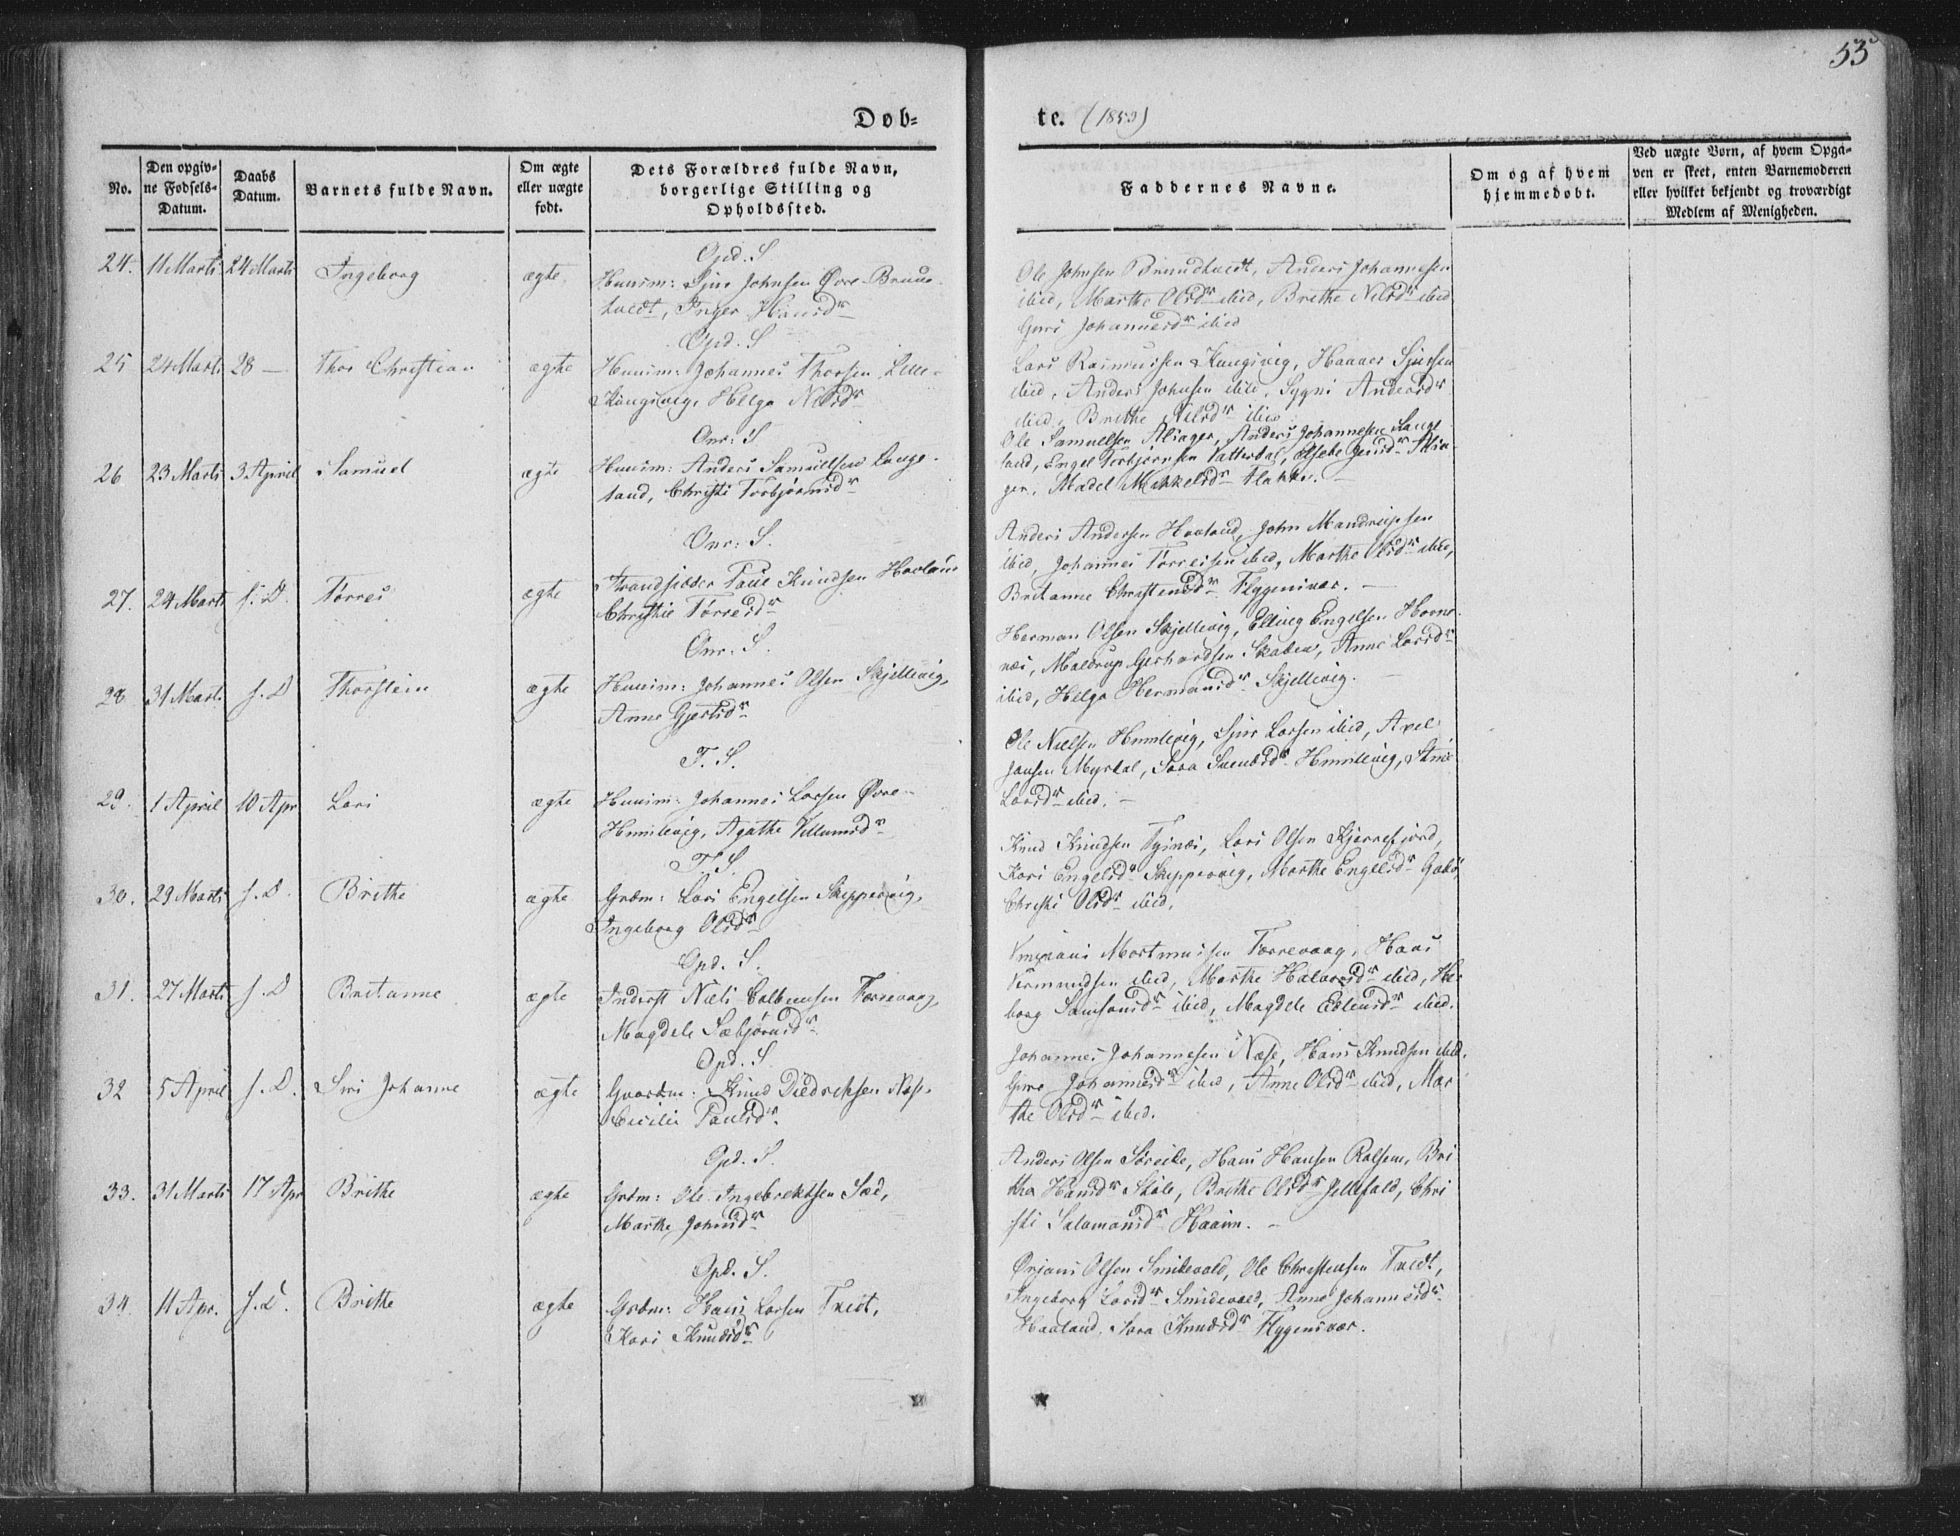 53
Døb=
te. (1853)
No.
Den opgiv-
ne Fødsels-
Datum.
Daabs
Datum.
Barnets fulde Navn.
Om ægte
eller uægte
født.
Dets Forældres fulde Navn,
borgerlige Stilling og
Opholdssted.
Faddernes Navne.
Om og af hvem
hjemmedøbt.
Ved uægte Børn, af hvem Opga-
ven er skeet, enten Barnemoderen
eller hvilket bekjendt og troværdigt
Medlem af Menigheden.
24. 11 Marts 24 Marts Ingeborg ægte
Opd. S
Huusm: Sjur Johnsen Øvre Bruun-
tvedt, Inger Hansdr
Ole Johnsen Bruuntvedt, Anders Johannesen
ibid, Marthe Olsdr ibid, Brithe Nilsdr ibid
Guri Johannesdr ibid
25 24 Marts 28 — Thor Christian ægte
Opd. S
Huusm: Johannes Thorsen Lille-
Kongsvig, Helga Nilsdr
Lars Rasmussen Kongsvig, Haaver Sjursen
ibid, Anders Johnsen ibid, Sygni Andersdr
ibid, Brithe Nilsdr ibid
26 23 Marts 3 April Samuel ægte
Onr: S
Huusm: Anders Samuelsen Lange-
land, Christi Torbjørnsdr
Ole Samuelsen Alsager, Anders Johannesen Lange
land, Engel Torbjørnsen Vatterdal, Elsebe
ger, Madel Mikkelsdr Flakke. —
27. 24 Marts s. D. Tørres ægte
Onr: S.
Strandsidder Paul Knudsen Haaland
Christie Tørresdr
Anders Andersen Haaland, John Mandrupsen
ibid, Johannes Tørresen ibid, Marthe Olsdr ibid,
Britanne Christensdr Flygensvær. —
28 31 Marts s. D Thorstein ægte
Onr. S.
Huusm: Johannes Olsen Skjellevig,
Anne Gjertsdr
Herman Olsen Skjellevig, Elling Engelsen Hovne-
næs, Maldrup Gerhardsen Skaden, Anne Larsdr
ibid, Helga Hermansdr Skjellevig. —
29. 1 April 10 Apr Lars ægte
T. S.
Huusm: Johannes Larsen Øvre-
Humlevig, Agathe Villumsdr
Ole Nielsen Humlevig, Sjur Larsen ibid, Axel
Jansen Myrdal, Sara Humlevig, Anne
Larsdr ibid. —
30. 29 Marts s. D. Brithe ægte
T. S.
Grdm: Lars Engelsen Skippervig,
Ingeborg Olsdr
Knud Knudsen Tysnæs, Lars Olsen Kjerrefjord,
Kari Engelsdr Skippervig, Marthe Engelsdr Gabø,
Christi Olsdr ibid,
31. 27 Marts s. D Britanne ægte
Opd. S.
Inderst Niels Colbensen Færrevaag,
Magdele Sæbjørnsdr
Mortmusen Færrevaag, Hans
ibid, Marthe Halvorsdr ibid, He
borg Samsonsdr ibid, Magdele Edlensdr ibid.
32 5 April s. D. Siri Johanne ægte
Opd. S.
Gaardm: Knud Diedriksen Næse.
Cicilie Paulsdr.
Johannes Johannesen Næse, Hans Knudsen ibid.
Guro Johannesdr ibid, Anne Olsdr ibid, Mar
the Olsdr ibid.
33. 31 Marts 17 Apr Brithe ægte
Opd. S.
Grdm: Ole Ingebrektsen Sæd,
Marthe Johnsdr
Anders Olsen Søreide, Hans Hansen Rolsem, Bri
tha Hansdr Skole, Brithe Olsdr Jellefald, Chri
sti Salamonsdr Haavn. —
34. 11 Apr. s. D. Brithe ægte
Opd. S.
Grdm: Hans Larsen Tvedt,
Kari Knudsdr
Ørjans Olsen Smidevold, Ole Christensen Tvedt,
Ingeborg Larsdr Smidevold, Anne Johannesdr
Haaland, Sara Knudsdr Flygensvær.